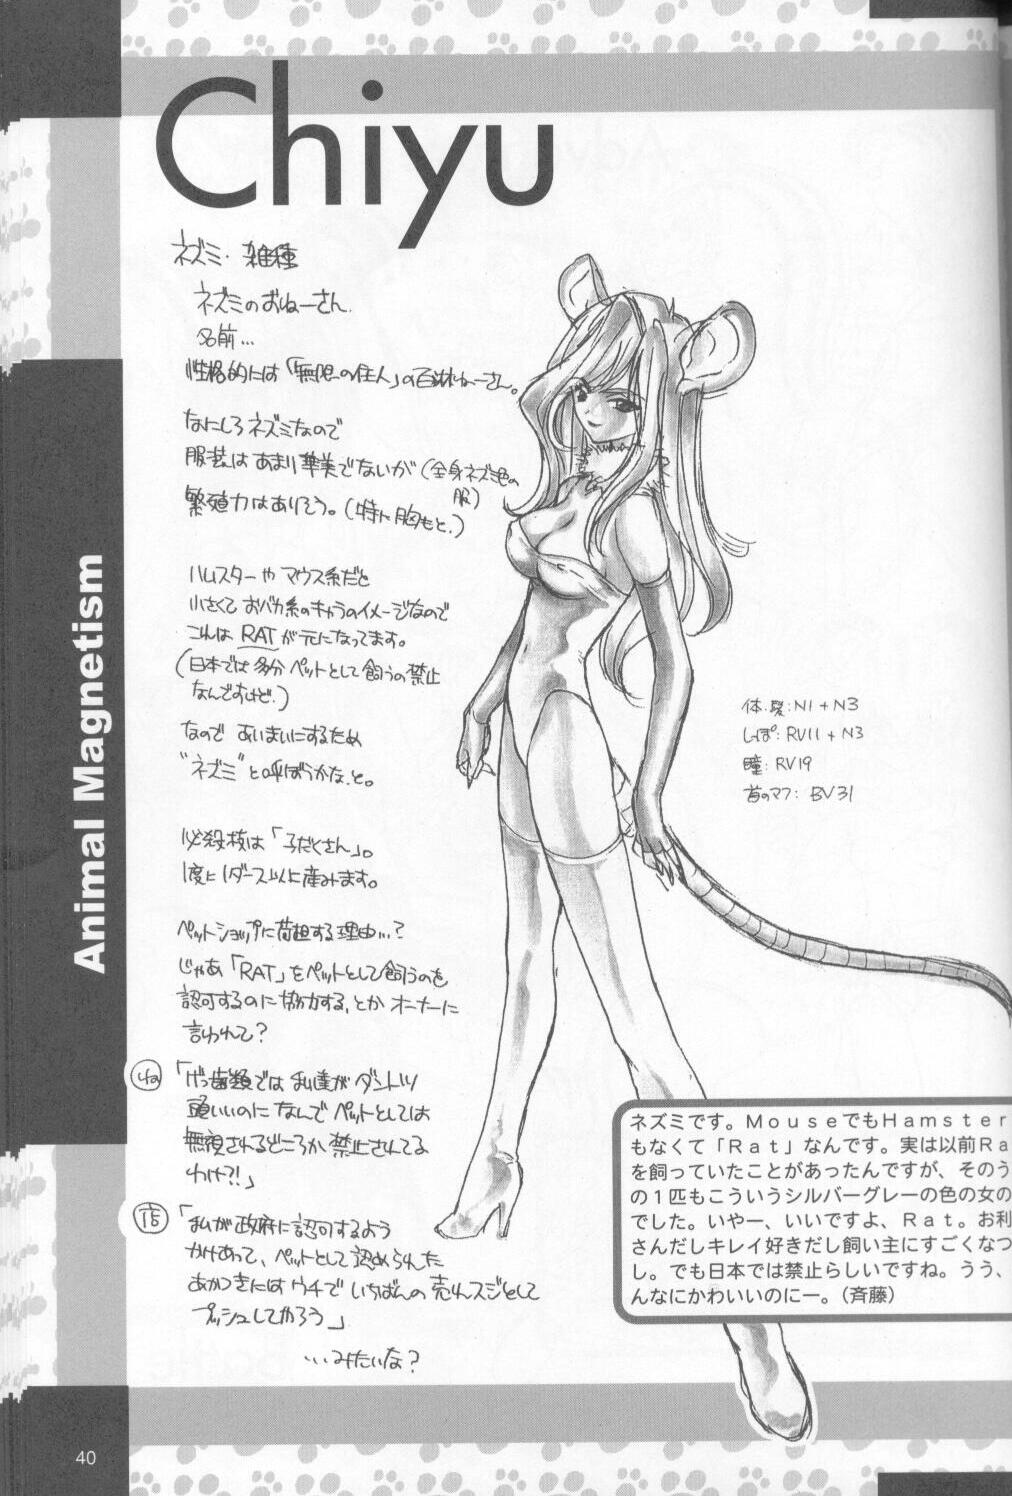 Chiyu
ネズミ・雑種
ネズミのおねーさん.
名前…
性格的には「無限の住人」の百琳ねーさん。
なにしろネズミなので
服装はあまり華美でないが(全身ネズミ色の
服)
繁殖力はありそう。(特に胸もと.)
ハムスターやマウス系だと
小さくておバカ系のキャラのイメージなので
こんなRATが元になってます。
(日本では多分ペットとして飼うの禁止
なんですけど.)
なので あいまいにするため
"ネズミ"と呼ぼうかな、と。
必殺技は「子だくさん」。
1度に1ダース以上産みます。
ペットショップに荷担する理由…?
じゃあ「RAT」をペットとして飼うのを
認可するのに協力する、とかオーナーに
言われて?
「げっ歯類では私達がダントツ
頭いいのになんでペットとしては
無視されるどころか禁止されてる
わけ?!」
店「私が政府に認可するよう
かけあって、ペットとして認められた
あかつきにはウチでいちばんの売れスジとして
プッシュしてやろう」
…みたいな?
体・髪:N1+N3
しっぽ:RV11+N3
瞳:RV19
首のマフ:BV31
ネズミです。MouseでもHamster
もなくて「Rat」なんです。実は以前Ra
を飼っていたことがあったんですが、そのう
の1匹もこういうシルバーグレーの色の女の
でした。いやー、いいですよ、Rat。お利
さんだしキレイ好きだし飼い主にすごくなつ
し。でも日本では禁止らしいですね。うう、
んなにかわいいのにー。(斉藤)
Animal Magnetism
40